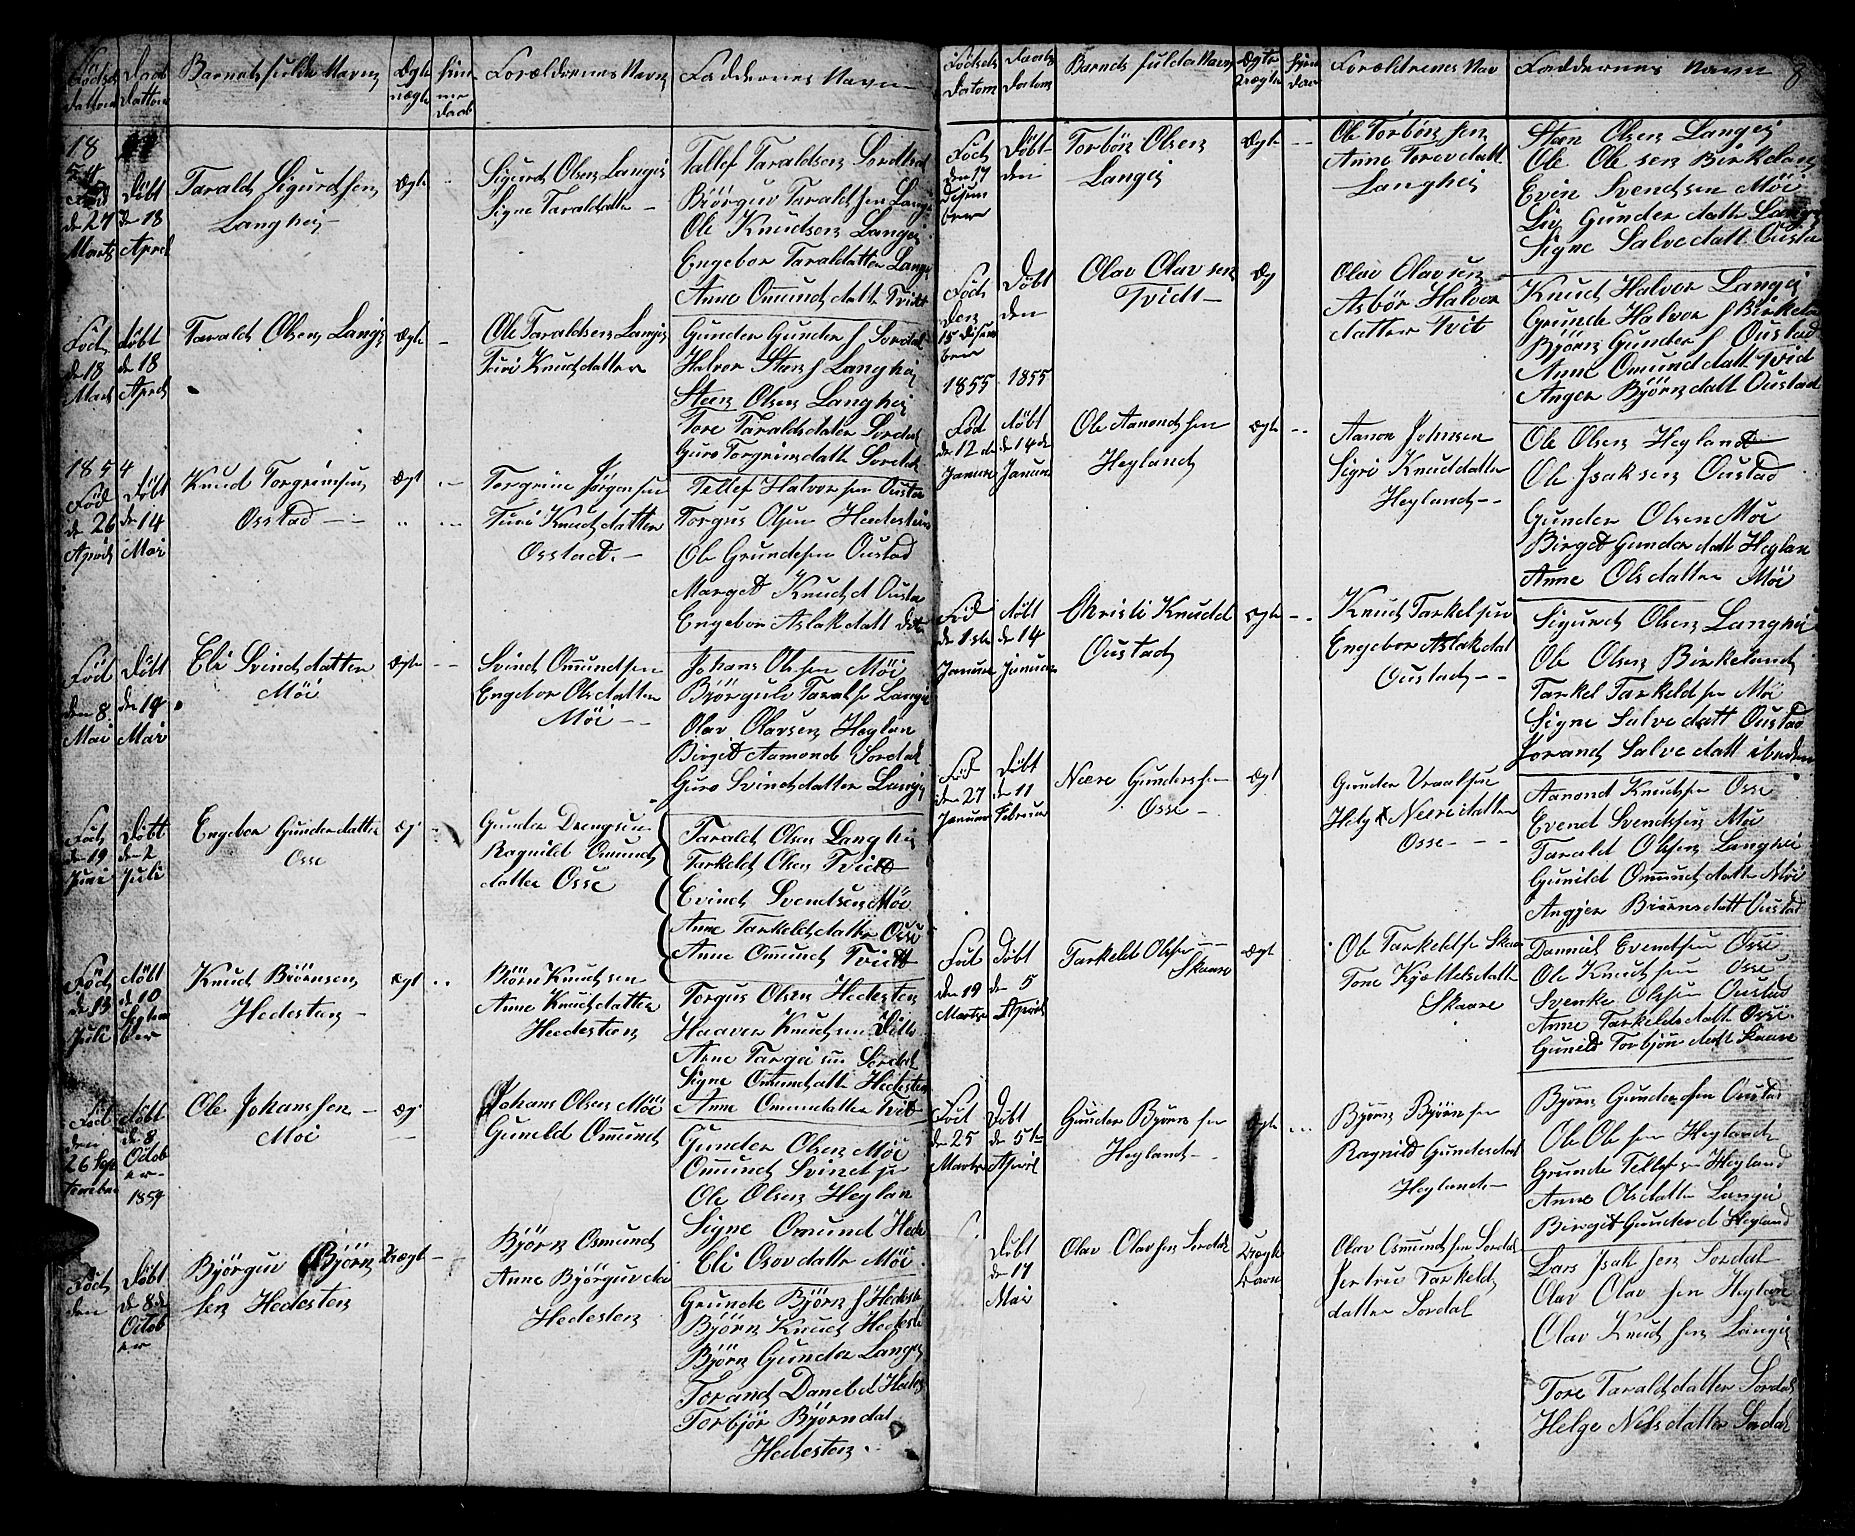 Fødsels Datom
Daab Dattom
Barnets fulde Navn
Ægte uægte
Hiemme daab
Forældrenes Navn
Faddernes Navn
1854
Fød de 27 Marts
Døbt de 18 Aprel
Tarald Sigurdsen
Langhei
Ægte
Sigurd Olsen Langei
Signe Taraldatter
Tellef Taraldsen Sordal
Biørguv Taraldsen Lange
Ole Knudsen Langei
Engebor Taraldatter Lange
Anne Omundsdatt Tvidt
Fød de 18 Marts
Døbt de 18 Aprel
Tarald Olsen Langei
Ægte
Ole Taraldsen Langei
Turi Knudsdatter
Gunder Gunder s Sordal
Halvor Stens s Langhei
Sten Olsen Langhei
Tore Taraldsdater Sordal
Guro Torgrimsdatte Sordal
1854
Fød de 26 April
Døbt de 14 Mai
Knud Torgrimsen
Osstad
Ægt
Torgrim Jørgensen
Turi Knudsdatter
Osstad
Tellef Halvorsen Ousta
Torgus Olsen Hedesten
Ole Grundesen Oustad
Marget Knuds d Ousta
Engebor Aslakdatt dito
Fød den 8 Mai
Døbt de 14 Mai
Eli Svindsdatter
Möi
Ægte
Svind Omundsen
Engebor Olsdatter
Möi
Johans Olssen Möi
Bjørgulv Taralsen Langei
Olav Olavsen Heylan
Birgit Aamonds Sordal
Guro Svindsdatter Langei
Fød den 19 Juni
Døbt den 2 Juli
Engebor Gunderdatter
Osse
Æg
Gunder Drengsen
Ragnild Omunds
datter Osse
Tarald Olsen Langhei
Tarkeld Olsen Tvidt
Evind Svendsen Möi
Anne Tarkeldsdatter Osse
Anne Ommunds Tvidt
Fød de 13 Juli
Døbt de 10 September
Knud Biörnsen
Hedesten
Ægt
Björn Knudsen
Anne Knudsdatter
Hedesten
Torgus Olsen Hedesten
Haaver Knudsen Ditto
Arne Targeisen Sordal
Signe Omundsdatter Hedesten
Anne Omundatter Tvid
Fød den 26 September
Døbt de 8 October
1854
Ole Johanssen
Möi
Æg
Johans Olsen Möi
Gunild Omunds
Gunder Olsen Möi
Omund Svindsen
Ole Olsen Heylan
Signe Omund Hede
Eli Osovdatter Möi
Født den
Døbt de 8de October
Björguv Björn
sen Hedesten
Uægte
Björn Osmunds
Anne Björguvda
Hedesten
Grunde Björn s Hedeste
Björn Knuds Hedeste
Björn Gunder Langei
Torand Danel d Hedes
Torbjør Björndat
Hedesten
Fødsels Datom
Daabs Datom
Barnets fulde Navn
Ægte Uægte
Hjem daab
Forældrenes Nav
Faddernes Navn
8
Fød den 17 Disember
Døbt den
Torbön Olsen
Langei
Ægte
Ole Torbönsen
Anne Torevdatt
Langhei
Stan Olsen Langei
Ole Olesen Birkelan
Evin Svendsen Möi
Liv Gunderdatte Langei
Signe Salvedatt Ousta
Fød den 15 Disember
Døbt den
Olav Olavsen
Tvidt
Æg
Olav Olavsen
Asbör Halvor
datter Tvit
Knud Halvor Langei
Grunde Halvor s Birkela
Bjørn Gunder s Oustad
Anne Omundsdatt Tvid
Anger Bjørnsdatt Oustad
1855
1855
Fød de 12 de Januar
døbt de 14de Januar
Ole Aanondsen
Heyland
Ægte
Aanon Johnsen
Sigri Knuddatter
Heyland
Ole Olsen Heyland
Ole Isaksen Oustad
Gunder Olsen Möi
Birget Gunderdatt Heylan
Anne Olsdatter Möi
Fød de 1ste Januar
døbt de 14 Januar
Christi Knudd
Oustad
Ægte
Knud Tarkelsen
Engebor Aslakdat
Oustad
Sigurd Olsen Langhei
Ole Olsen Birkeland
Tarkel Tarkeldsen Möi
Signe Salvedatt Oustad
Jorand Salvedatt ibedem
Fød den 27 Januar
Døbt de 11 Februar
Neere Gundersen
Osse
Ægt
Gunder Vraalsen
Helge Neeridatter
Osse
Aanond Knudsen Osse
Evend Svendsen Mui
Tarald Olsen Langhei
Gunild Omundsdatter Möi
Angjer Biørnsdatt Oustad
Fød den 19 Martz
Døbt de 5 April
Tarkeld Olsen
Skaare
Ægt
Ole Tarkeldsen Skaar
Tone Kjættelsdatte
Skaare
Danniel Evendsen Osse
Ole Knudsen Osse
Svenke Olsen Oustad
Anne Tarkeldsdatt Osse
Gunild Torbjøn datt Skaare
Fød de 25 Martz
Døbt de 5te April
Gunder Byörnsen
Heyland
Ægte
Byörn Byörnsen
Ragnild Gundersdat
Heyland
Byörn Gundersen Oustad
Ole Olesen Heyland
Grunde Tellefsen Heyland
Anne Olsdatter Langei
Birget Gunder d Heyland
Døbt de 17 Mai
Olav Olavsen Sordal
Uægte Barn
Olav Osmundsen Sordal
Jertru Tarkelds
datter Sordal
Lars Isaksen Sordal
Olav Olavsen Heylan
Olav Knudsen Langei
Tore Taraldsdatter Sordal
Helge Nilsdatter Sordal